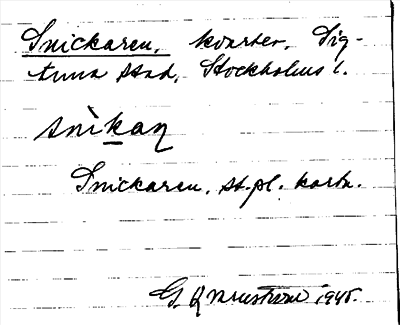 Snickaren, kvarter, Sig-
tuna stad, Stockholms l.
snikaɳ
Snickaren, st.pl. karta.
G. 1945.